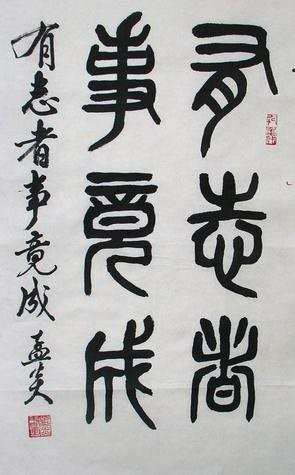 有志者
事竟成
有志者事竟成 孟炎